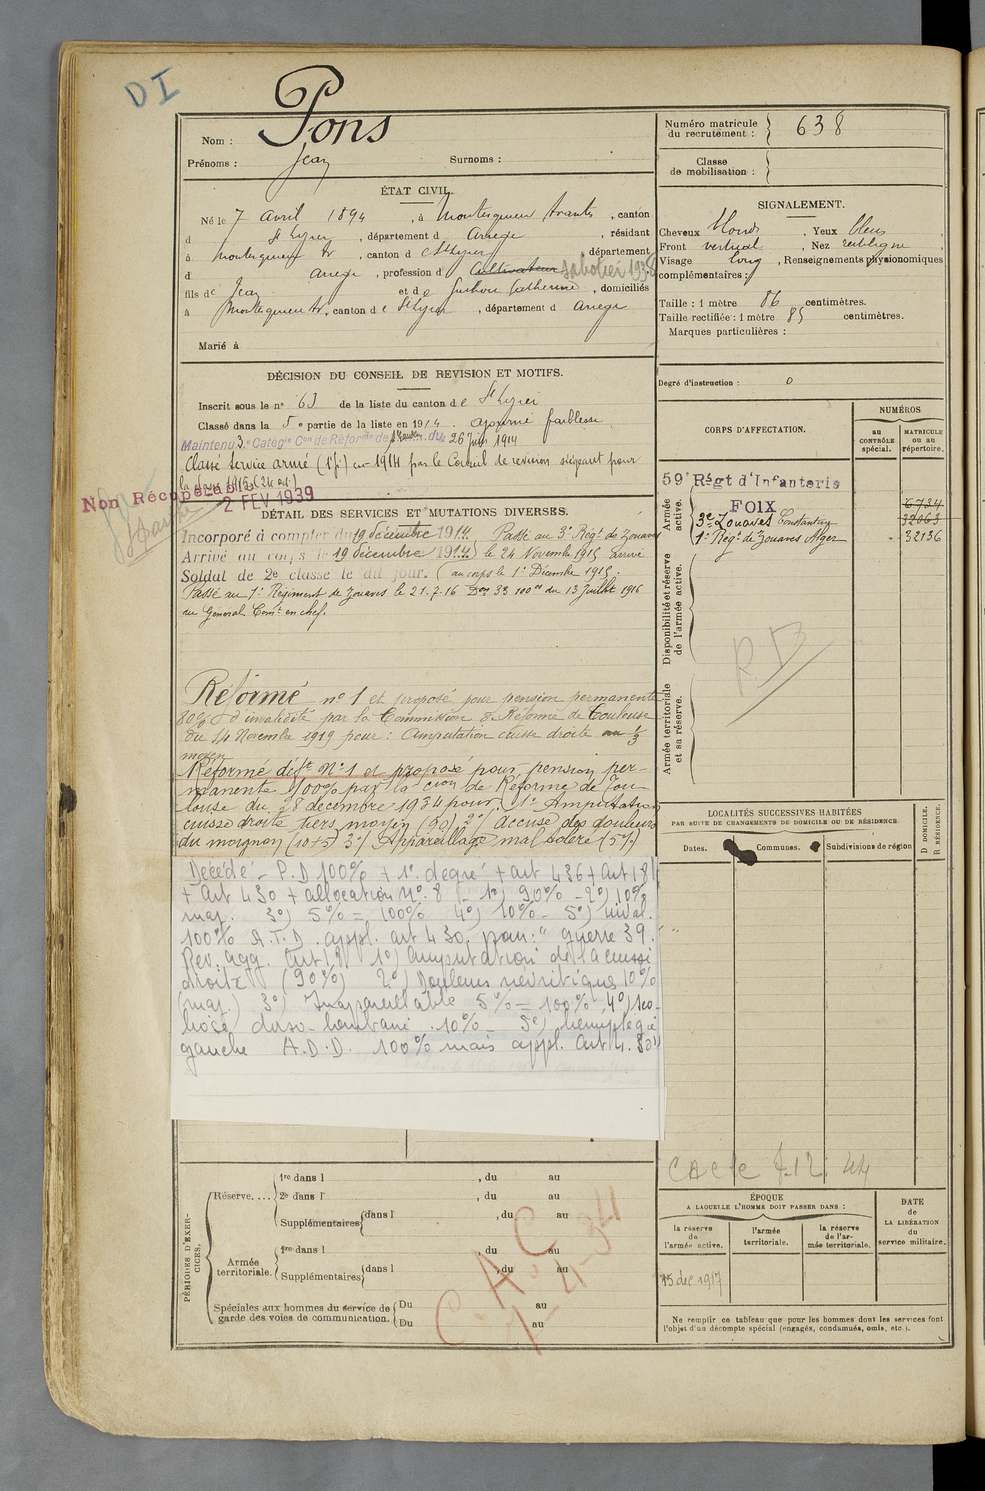 DI
Nom : Pons
Prénoms : Jean Surnoms :
ÉTAT CIVIL.
Né le 7 avril 1894, à Montesquieu Avantès, canton
d St Lizier, département d Ariège, résidant
à Montesquieu Av, canton d e St Lizier, département
d Ariège, profession d Cultivateur Sabotier 1938
fils de Jean et de Catherine, domiciliés
à Montesquieu Av, canton d e St Lizier, département d Ariège
Marié à
DÉCISION DU CONSEIL DE REVISION ET MOTIFS.
Inscrit sous le n° 63 de la liste du canton de St Lizier
Classé dans la 5e partie de la liste en 1914. ajourné faiblesse
Maintenu 3e Catégie Con de Réforme de du 26 Juin 1914
Classé service armé (1 p) en 1914 par le Conseil de revision siégeant pour
la classe 1915 (24 oct.)
Non Récupérable
2 FEV 1939
DÉTAIL DES SERVICES ET MUTATIONS DIVERSES.
Incorporé à compter du 19 décembre 1914. Passé au 3e Régt de Zouaves
Arrivé au corps le 19 décembre 1914. le 24 Novembre 1915 Arrivé
Soldat de 2e classe le dit jour. au corps le 1er Décembre 1915.
Passé au 1er Régiment de Zouaves le 21-7-16 Don 33 100 du 13 Juillet 1916
du Général Comt en chef.
Réformé n° 1 et proposé pour pension permanente
80% d'invalidité par la Commission de Réforme de Toulouse
du 14 Novembre 1919 pour : Amputation cuisse droite au 1/3
moyen
Réformé déft N° 1 et proposé pour pension per-
manente 100% par la cion de Réforme de Tou-
louse du 28 décembre 1934 pour : 1° Amputation
cuisse droite tiers moyen (90) 2°/ accuse des douleurs
du moignon (10+5) 3°/ Appareillage mal toléré (5%)
Décédé - P.D 100% + 1er degré + art 436 + Art 18
+ Art 430 + allocation n°. 8 - 1°) 90% - 2°) 10%
maj. 3°) 5% = 100% 4°) 10% - 5°) inval.
100% A.T.D. appl. art 430 pour : "guerre 39.
Rev. agg. Art 18 1°) Amputation de la cuisse
droite (90%) 2°) Douleurs névritiques 10%
(maj.) 3°) Inappareillable 5% = 100% 4°) Sco-
liose dorso-lombaire 10% - 5°) hémiplégie
gauche A.D.D. 100% mais appl. Art 4.30"
PÉRIODES D'EXERCICES.
Réserve.... 1re dans l , du au
2e dans l' , du au
Supplémentaires dans l , du au
Armée territoriale. 1re dans l , du au
Supplémentaires dans l , du au
Spéciales aux hommes du service de garde des voies de communication. Du au
Du au
C. A. C
Numéro matricule du recrutement : 638
Classe de mobilisation :
SIGNALEMENT.
Cheveux blonds, Yeux bleus
Front vertical, Nez rectiligne
Visage long, Renseignements physionomiques
complémentaires :
Taille : 1 mètre 86 centimètres.
Taille rectifiée : 1 mètre 85 centimètres.
Marques particulières :
Degré d'instruction : 0
CORPS D'AFFECTATION.
NUMÉROS
au CONTRÔLE spécial.
MATRICULE ou au répertoire.
Armée active.
59e Régt d'Infanterie
FOIX 6734
3e Zouaves Constantine 32063
1er Régt de Zouaves Alger 32136
Disponibilité et réserve de l'armée active.
RD
Armée territoriale et sa réserve.
LOCALITÉS SUCCESSIVES HABITÉES
PAR SUITE DE CHANGEMENTS DE DOMICILE OU DE RÉSIDENCE.
Dates. Communes. Subdivisions de région
D DOMICILE.
R RÉSIDENCE.
7.12.44
ÉPOQUE
A LAQUELLE L'HOMME DOIT PASSER DANS :
la réserve de l'armée active.
l'armée territoriale.
la réserve de l'armée territoriale.
DATE de LA LIBÉRATION du service militaire.
15 dec 1917
Ne remplir ce tableau que pour les hommes dont les services font
l'objet d'un décompte spécial (engagés, condamnés, omis, etc.).